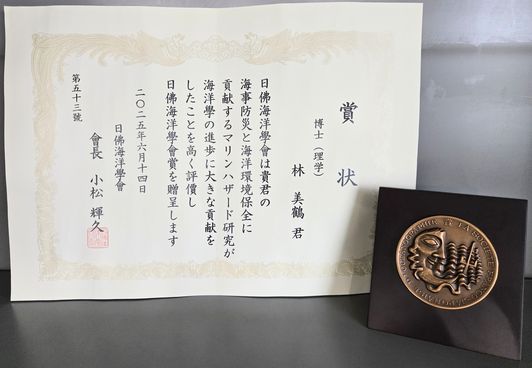 賞状
博士（理学）
林 美鶴 君
日佛海洋學會は貴君の
海事防災と海洋環境保全に
貢献するマリンハザード研究が
海洋學の進歩に大きな貢献を
したことを高く評價し
日佛海洋學會賞を贈呈します
二〇二五年六月十四日
日佛海洋學會
會長 小松 輝久
第五十三號